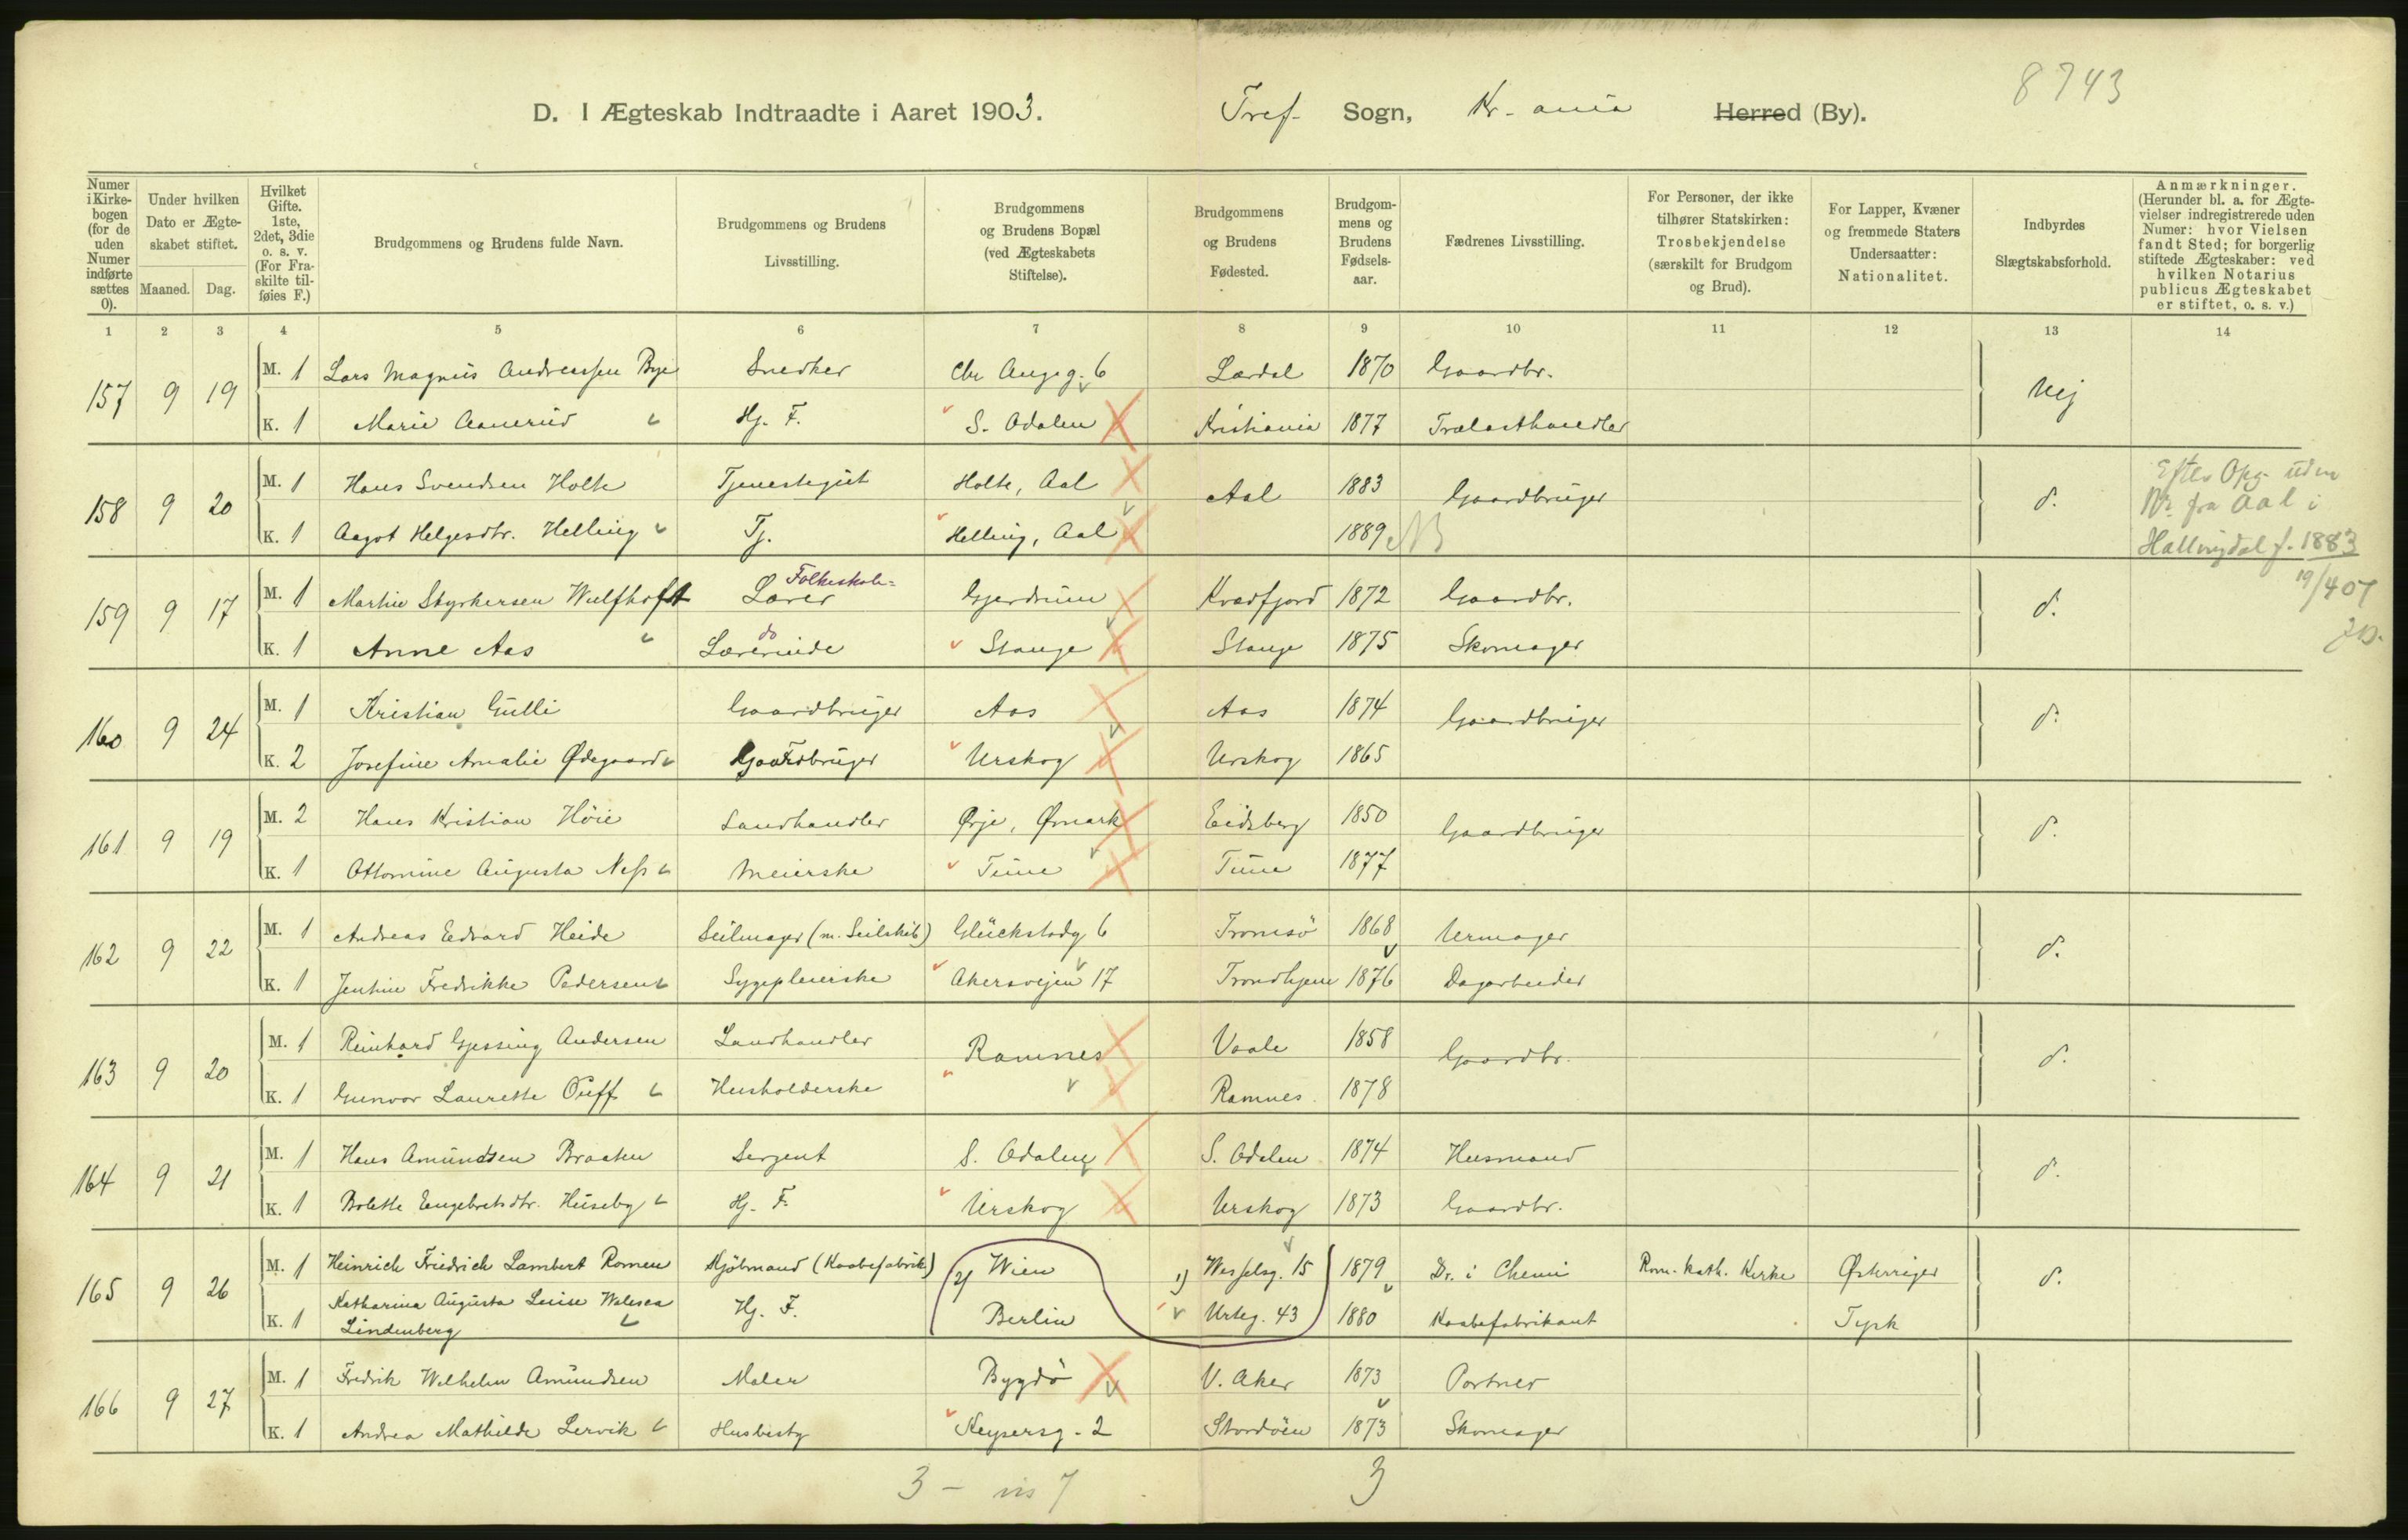 8743
D. I Ægteskab Indtraadte i Aaret 1903. Tref. Sogn, Kr.ania Herred (By).
Numer i Kirkebogen (for de uden Numer indførte sættes 0).
Under hvilken Dato er Ægteskabet stiftet.
Maaned. Dag.
Hvilket Gifte. 1ste, 2det, 3die o. s. v. (For Fraskilte tilføies F.)
Brudgommens og Brudens fulde Navn.
Brudgommens og Brudens Livsstilling.
Brudgommens og Brudens Bopæl (ved Ægteskabets Stiftelse).
Brudgommens og Brudens Fødested.
Brudgommens og Brudens Fødselsaar.
Fædrenes Livsstilling.
For Personer, der ikke tilhører Statskirken: Trosbekjendelse (særskilt for Brudgom og Brud).
For Lapper, Kvæner og fremmede Staters Undersaatter: Nationalitet.
Indbyrdes Slægtskabsforhold.
Anmærkninger. (Herunder bl. a. for Ægtevielser indregistrerede uden Numer: hvor Vielsen fandt Sted; for borgerlig stiftede Ægteskaber: ved hvilken Notarius publicus Ægteskabet er stiftet, o. s. v.)
1 2 3 4 5 6 7 8 9 10 11 12 13 14
157 9 19 M. 1 Lars Magnus Andreassen Bye Snedker Chr Augsg. 6 Lærdal 1870 Gaardbr. Nej
K. 1 Marie Aamerud Hj. F. S. Odalen Kristiania 1877 Trælasthandler
158 9 20 M. 1 Hans Svendsen Holte Tjenestegut Holte, Aal Aal 1883 Gaardbruger d. Efter Opg. uden Nr. fra Aal i
K. 1 Aagot Helgesdtr. Helling Tj. Helling, Aal 1889 NB Hallingdal f. 1883
19/4 07
159 9 17 M. 1 Martin Styrkersen Wulfhoft Folkeskole= Lærer Gjerdrum Kvædfjord 1872 Gaardbr. d.
K. 1 Anne Aas do Lærerinde Stange Stange 1875 Skomager
160 9 24 M. 1 Kristian Gulli Gaardbruger Aas Aas 1874 Gaardbruger d.
K. 2 Josefine Amalie Ødegaard Gaardbruger Urskog Urskog 1865
161 9 19 M. 2 Hans Kristian Höie Landhandler Ørje, Ømark Eidsberg 1850 Gaardbruger d.
K. 1 Ottomine Augusta Ness Meierske Tune Tune 1877
162 9 22 M. 1 Andreas Edvard Heide Seilmager (m. Seilskib) Glückstadg 6 Tromsö 1868 Urmager d.
K. 1 Jentine Fredrikke Pedersen Sygepleierske Akersvejen 17 Trondhjem 1876 Dagarbeider
163 9 20 M. 1 Reinhard Gjessing Andersen Landhandler Ramnes Vaale 1858 Gaardbr. d.
K. 1 Gunvor Laurette Ruff Husholderske Ramnes 1878
164 9 21 M. 1 Hans Amundsen Braaten Sergent S. Odalen S. Odalen 1874 Husmand d.
K. 1 Bolette Engebretsdtr. Huseby Hj. F. Urskog Urskog 1873 Gaardbr.
165 9 26 M. 1 Heinrich Friedrich Lambert Romen Kjöbmand (Kaabefabrik) 2) Wien 1) Wesselsg. 15 1879 Dr. i Chemi Rom. kath. Kirke Østerriger d.
K. 1 Katharina Augusta Luise Walesca Lindenberg Hj. F. Berlin Urteg. 43 1880 Kaabefabrikant Tysk
166 9 27 M. 1 Fredrik Wilhelm Amundsen Maler Bygdö V. Aker 1873 Portner
K. 1 Andrea Mathilde Lervik Husbesty Keysersg. 2 Stordöen 1873 Skomager
3 - 7 3